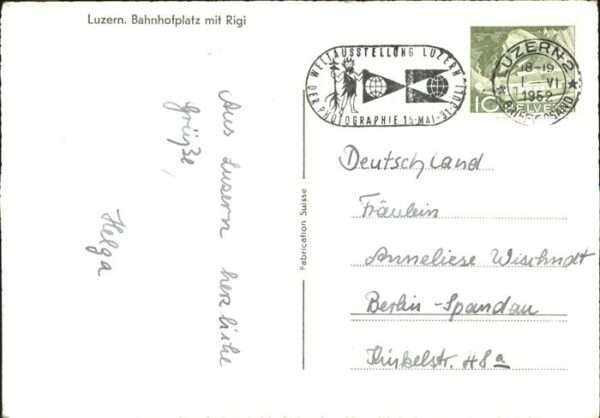 Luzern. Bahnhofplatz mit Rigi
WELTAUSSTELLUNG LUZERN
DER PHOTOGRAPHIE 15. MAI-31. JULI
LUZERN 2
18-19
1. VI
1952
BRIEFVERSAND
10 HELVETIA
Aus Luzern herzliche
Grüße,
Helga
Fabrication Suisse
Deutschland
Fräulein
Anneliese Wischndt
Berlin-Spandau
48a